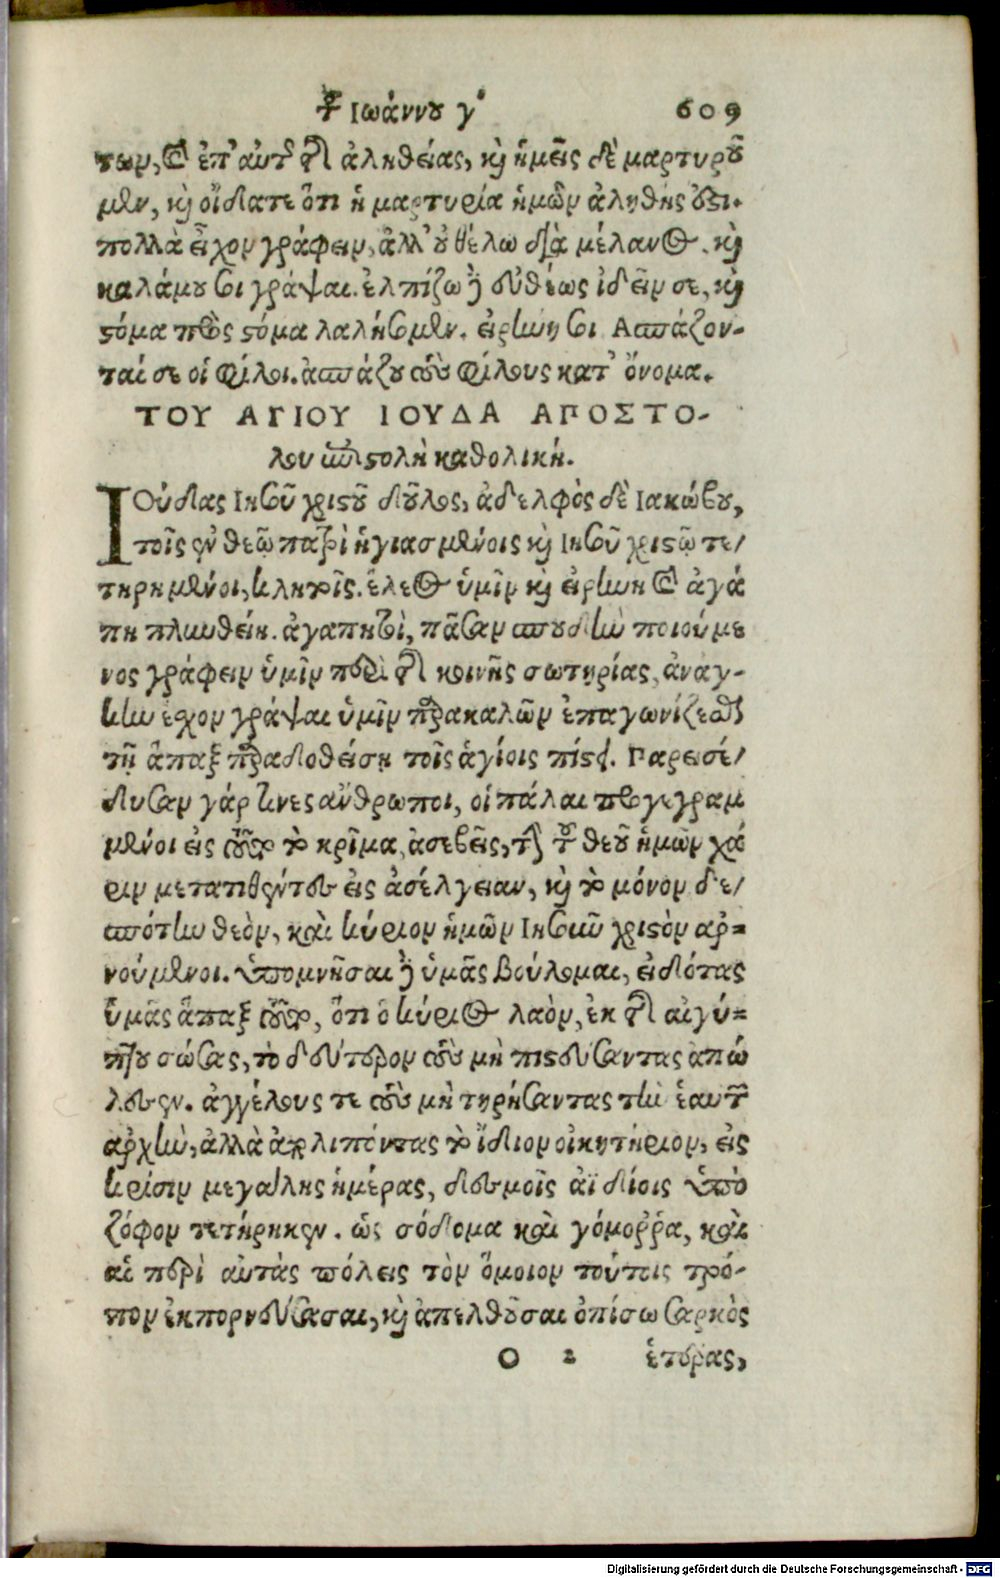 τοῦ Ιωάννου γ΄ 609
των, καὶ ἐπ' αὐτῆς τῆς ἀληθείας, καὶ ἡμεῖς δὲ μαρτυροῦ
μεν, καὶ οἴδατε ὅτι ἡ μαρτυρία ἡμῶν ἀληθής ἐστι.
πολλὰ εἶχον γράφειν, ἀλλ' οὐ θέλω διὰ μέλανος καὶ
καλάμου σοι γράψαι. ἐλπίζω δὲ εὐθέως ἰδεῖν σε, καὶ
στόμα πρὸς στόμα λαλήσομεν. εἰρήνη σοι Ασπάζον-
ταί σε οἱ φίλοι. ἀσπάζου τοὺς φίλους κατ' ὄνομα.
ΤΟΥ ΑΓΙΟΥ ΙΟΥΔΑ ΑΠΟΣΤΟ-
λου ἐπιστολὴ καθολική.
ΙΟύδας Ιησοῦ χριστοῦ δοῦλος, ἀδελφὸς δὲ Ιακώβου,
τοῖς ἐν θεῷ πατρὶ ἡγιασμένοις καὶ Ιησοῦ χριστῷ τε/
τηρημένοις, κλητοῖς. ἔλεος ὑμῖν καὶ εἰρήνη καὶ ἀγά
πη πληνθείη. ἀγαπητοὶ, πᾶσαν σπουδὴν ποιούμε
νος γράφειν ὑμῖν περὶ τῆς κοινῆς σωτηρίας, ἀνάγ-
κην ἔσχον γράψαι ὑμῖν παρακαλῶν ἐπαγωνίζεσθαι
τῇ ἅπαξ παραδοθείσῃ τοῖς ἁγίοις πίστει. Παρεισέ/
δυσαν γάρ τινες ἄνθρωποι, οἱ πάλαι προγεγραμ
μένοι εἰς τοῦτο τὸ κρῖμα, ἀσεβεῖς, τὴν τοῦ θεοῦ ἡμῶν χά
ριν μετατιθέντες εἰς ἀσέλγειαν, καὶ τὸ μόνον δε/
σπότην θεὸν, καὶ κύριον ἡμῶν Ιησοῦν χριστὸν αρ=
νούμενοι. Ὑπομνῆσαι δὲ ὑμᾶς βούλομαι, εἰδότας
ὑμᾶς ἅπαξ τοῦτο, ὅτι ὁ κύριος λαὸν, ἐκ τῆς αἰγύ=
πτου σώσας, τὸ δεύτερον τοὺς μὴ πιστεύσαντας απώ
λεσεν. ἀγγέλους τε τοὺς μὴ τηρήσαντας τὴν ἑαυτῶν
αρχὴν, ἀλλὰ ἀπολιπόντας τὸ ἴδιον οἰκητήριον, εἰς
κρίσιν μεγάλης ἡμέρας, δεσμοῖς ἀϊδίοις ὑπὸ
ζόφον τετήρηκεν. ὡς σόδομα καὶ γόμοῤῥα, καὶ
αἱ περὶ αὐτὰς πόλεις τὸν ὅμοιον τούτοις τρό-
πον ἐκπορνεύσασαι, καὶ ἀπελθοῦσαι ὀπίσω σαρκὸς
O 2 ἑτέρας,
Digitalisierung gefördert durch die Deutsche Forschungsgemeinschaft - DFG